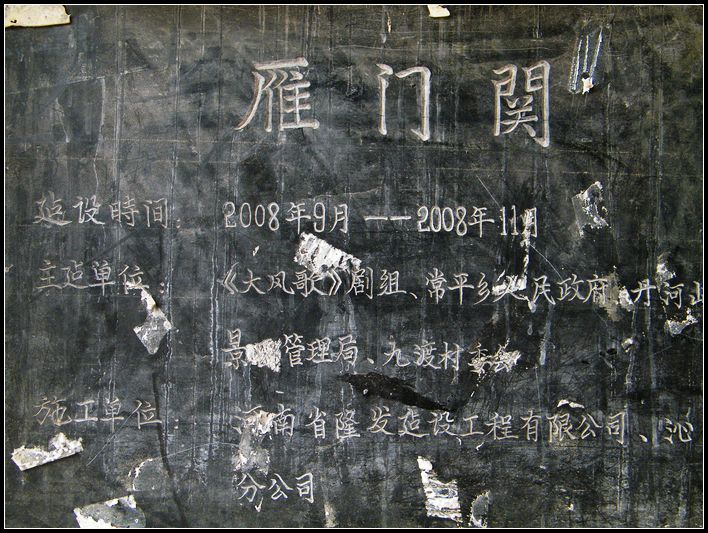 雁门关
建设時间: 2008年9月——2008年11月
主建单位: 《大风歌》剧组、常平乡人民政府、丹河
景 管理局、九渡村委会
施工单位 河南省隆发建设工程有限公司、沁
分公司